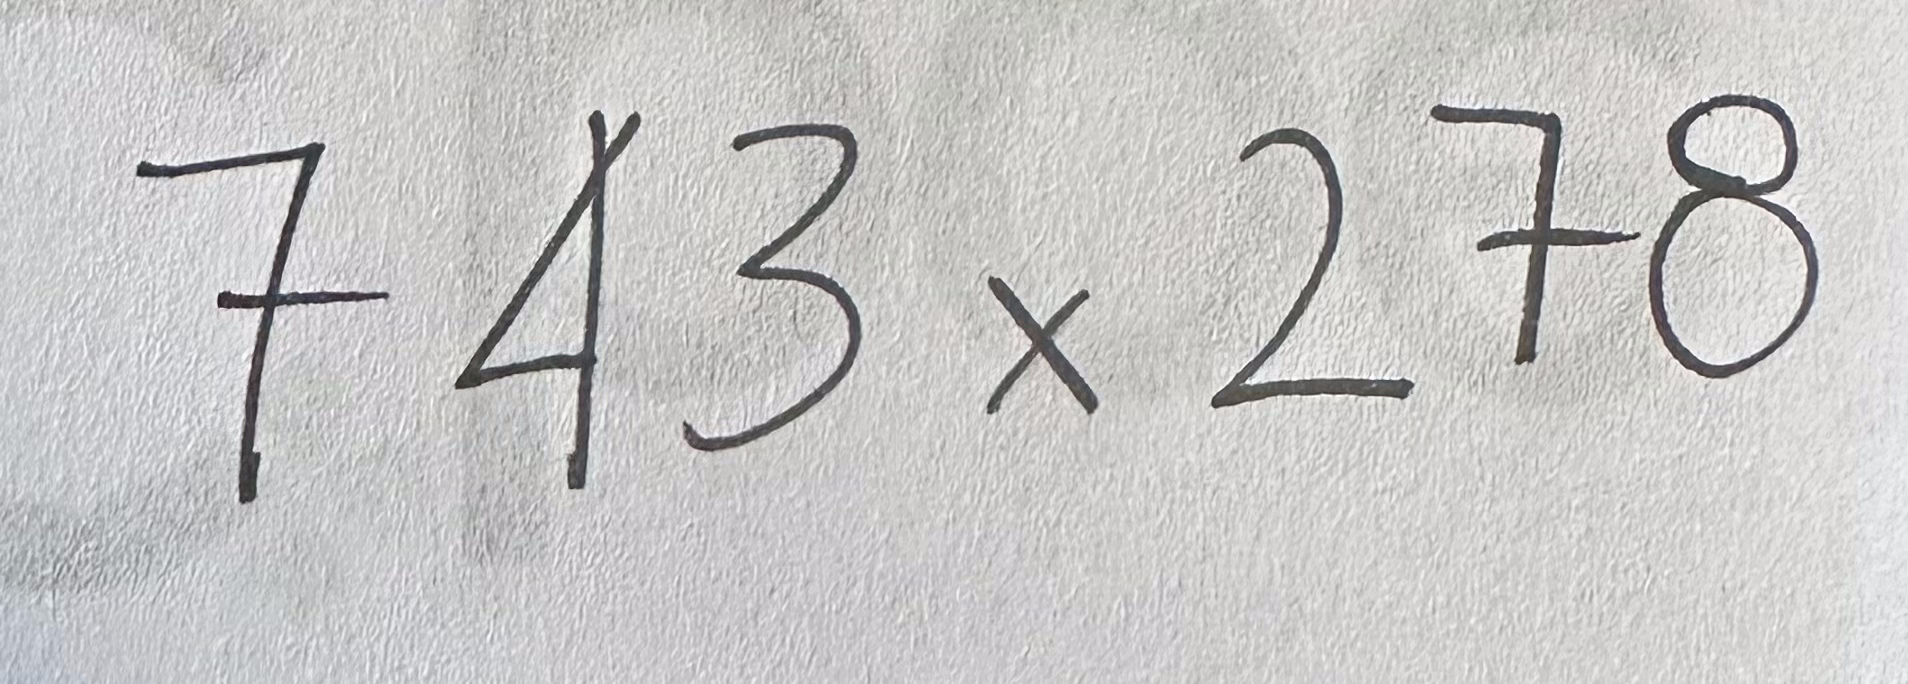 743 x 278